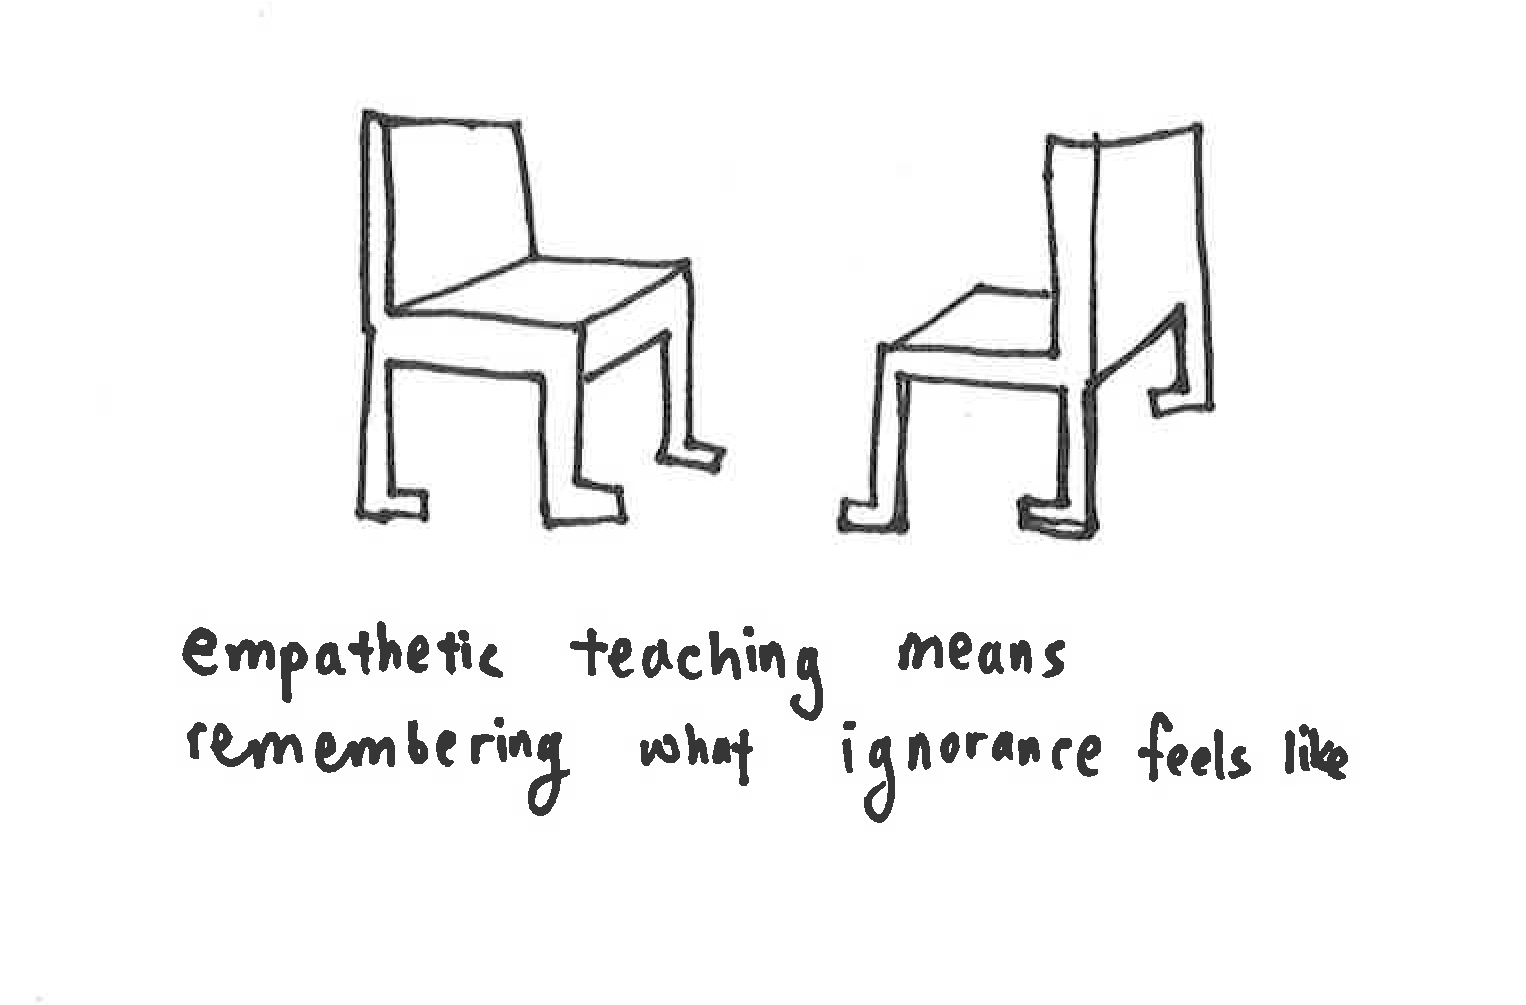 empathetic teaching means
remembering what ignorance feels like